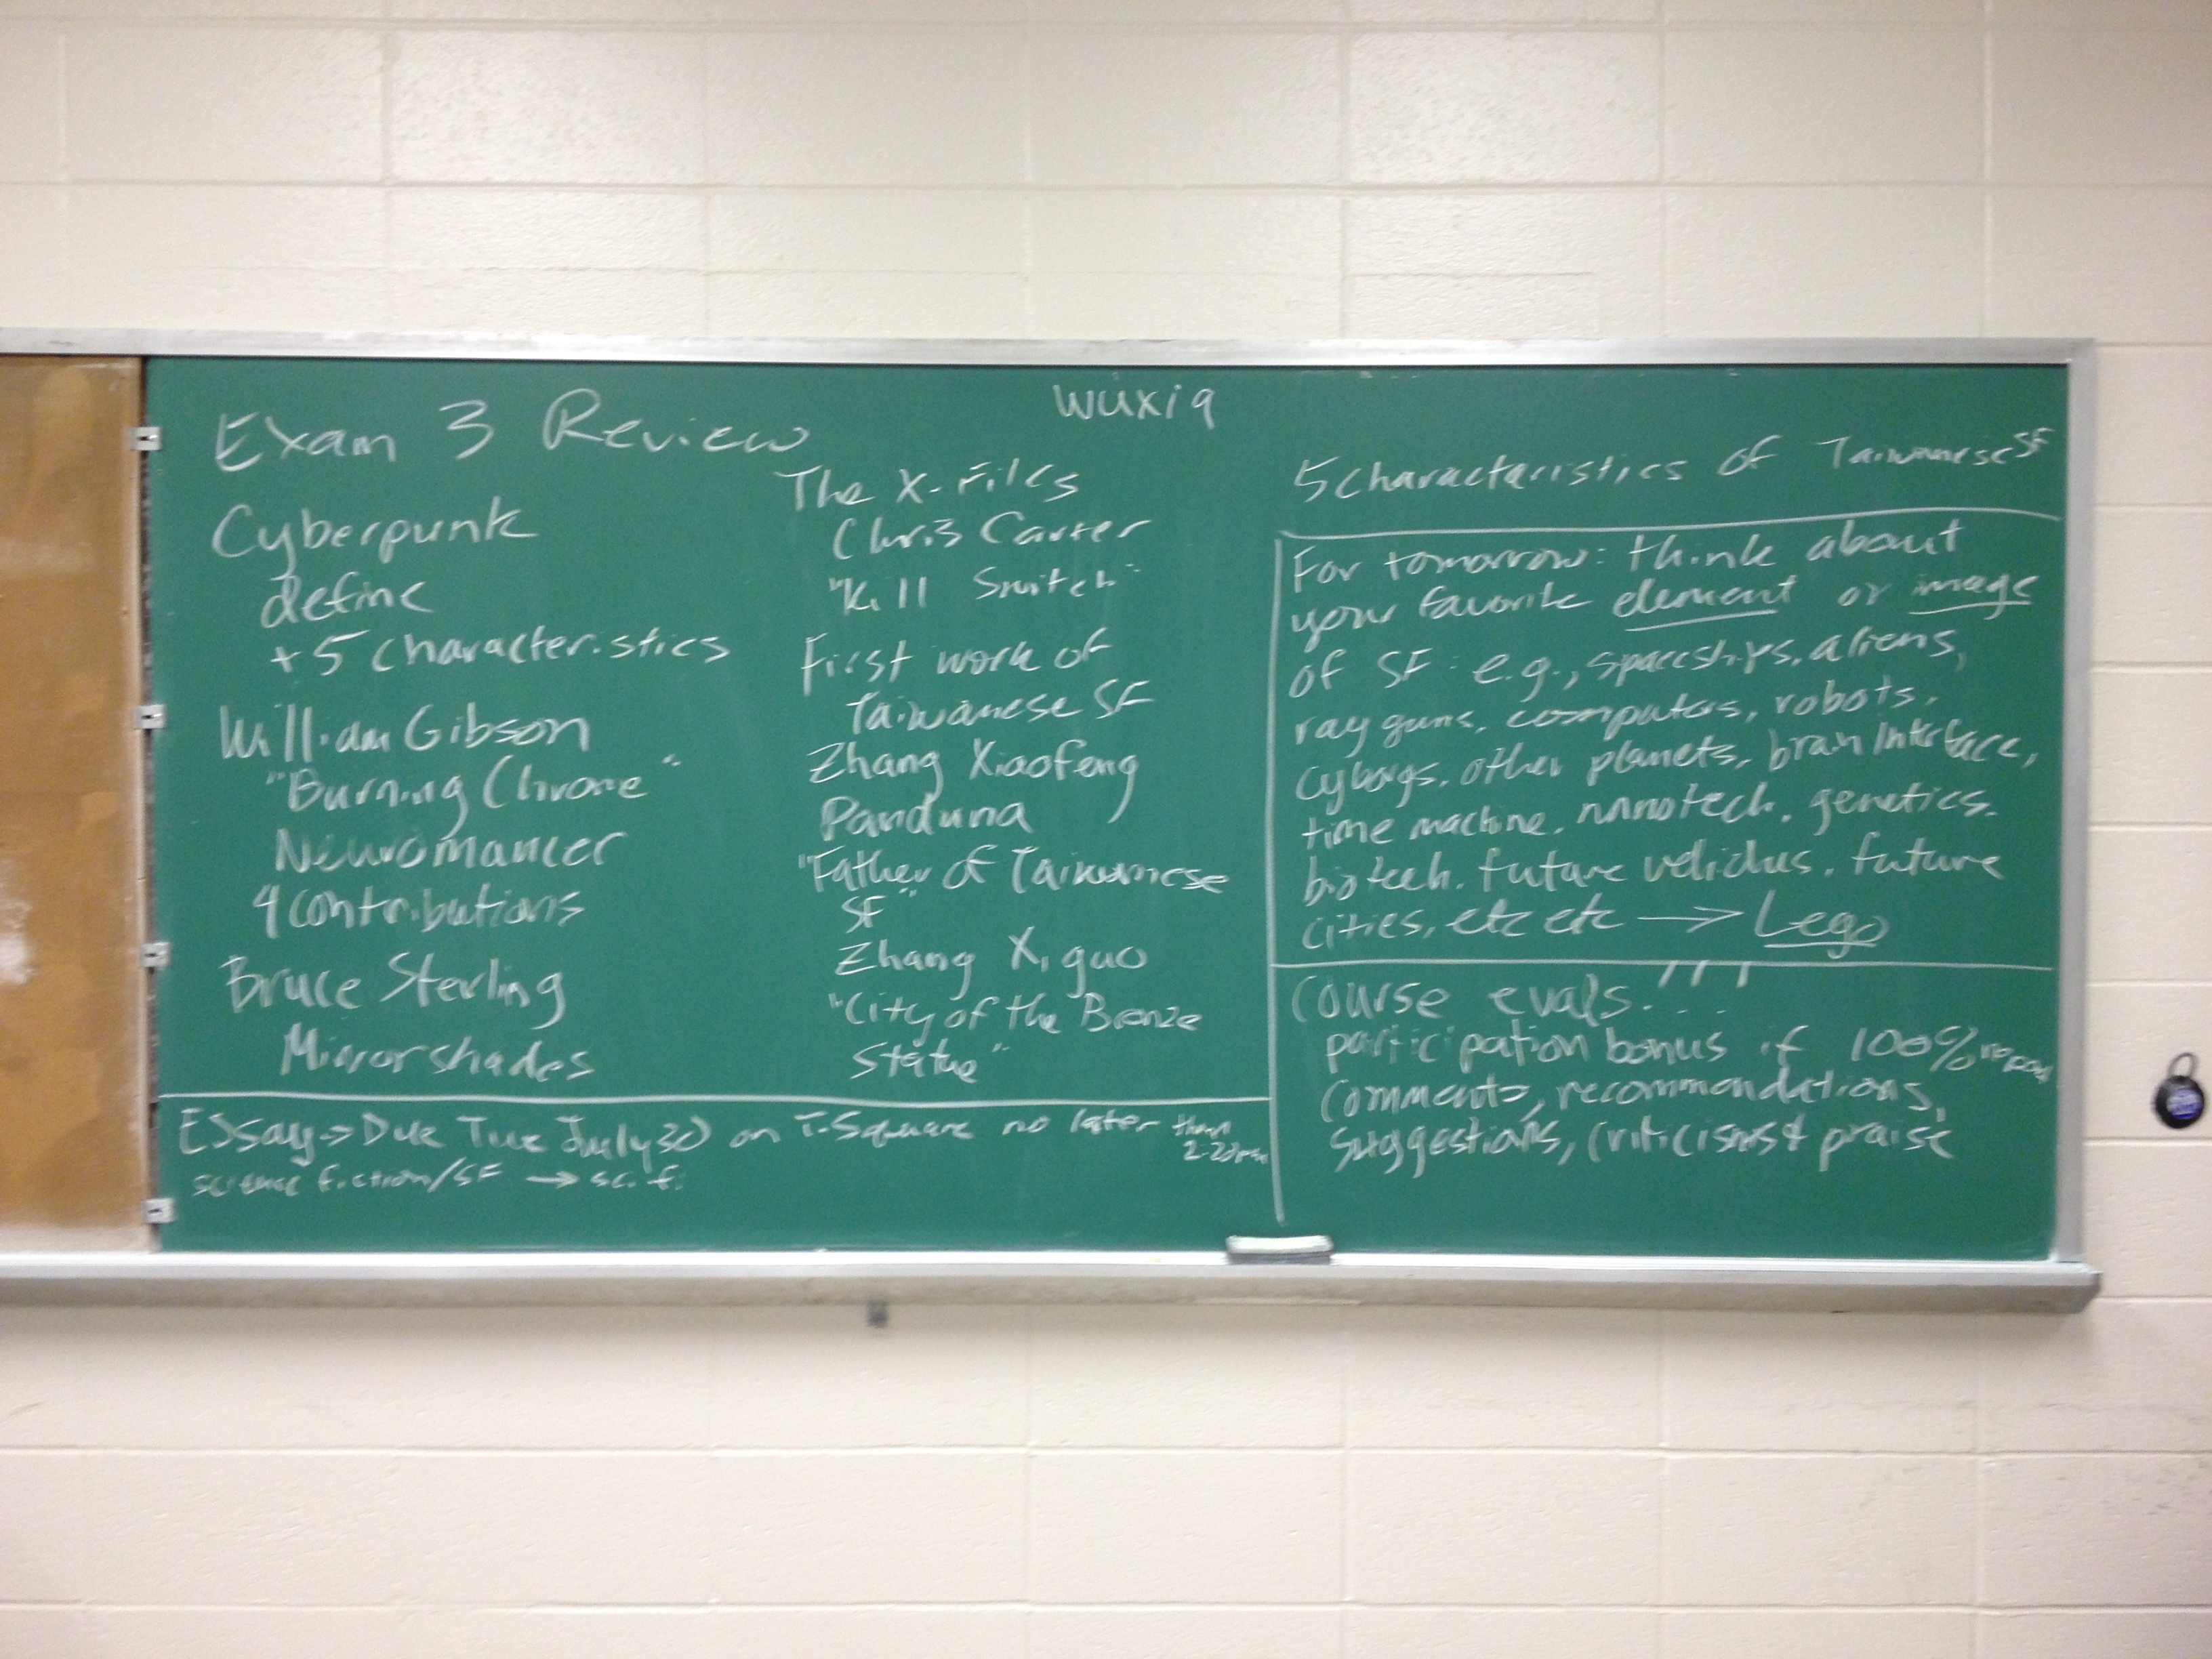 Exam 3 Review
Cyberpunk
define
+5 characteristics
William Gibson
"Burning Chrome"
Neuromancer
4 contributions
Bruce Sterling
Mirrorshades
wuxia
The X-Files
Chris Carter
"Kill Switch"
First work of
Taiwanese SF
Zhang Xiaofeng
Panduna
"Father of Taiwanese
SF"
Zhang Xiguo
"City of the Bronze
Statue"
Essay -> Due Tue July 30 on T-Square no later than
science fiction/SF -> sci-fi
5 characteristics of Taiwanese SF
For tomorrow: think about
your favorite element or image
of SF: e.g., spaceships, aliens,
ray guns, computers, robots,
cyborgs, other planets, brain interface,
time machine, nanotech, genetics,
biotech, future vehicles, future
cities, etc etc -> Lego
Course evals!!!
participation bonus if 100%
comments, recommendations,
suggestions, criticisms & praise